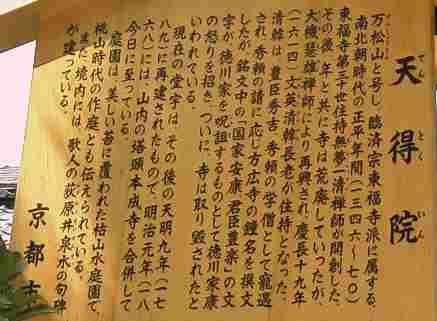 天得院
てんとくいん
万松山と号し、臨済宗東福寺派に属する。
南北朝時代の正平年間(一三四六～七〇)
東福寺第三十世住持無夢一清禅師が開創した。
その後、年と共に寺は荒廃していったが、
大機琵雄禅師により再興され、慶長十九年
(一六一四)文英清韓長老が住持となった。
清韓は、豊臣秀吉、秀頼の学僧として寵遇
され、秀頼の請に応じ方広寺の鐘銘を撰文
したが、銘文中の「国家安康 君臣豊楽」の文
字が、徳川家を呪詛するものとして徳川家康
の怒りを招き、ついに、寺は取り毀されたと
いわれている。
現在の堂宇は、その後の天明九年(一七
八九)に再建されたもので、明治元年(一八
六八)には、山内の塔頭本成寺を合併して
今日に至っている。
庭園は、美しい苔に覆われた枯山水庭園で、
桃山時代の作庭とも伝えられている。
また、境内には、歌人の荻原井泉水の句碑
が建っている。
京都市